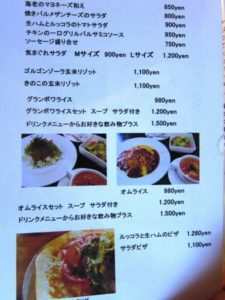 海老のマヨネーズ和え 850yen
焼きパルメザンチーズのサラダ 800yen
生ハムとルッコラのトマトサラダ 900yen
チキンの一口グリルバルサミコソース 950yen
ソーセージ盛り合せ 750yen
気まぐれサラダ Mサイズ 900yen Lサイズ 1.200yen
ゴルゴンゾーラ玄米リゾット 1,100yen
きのこの玄米リゾット 1,100yen
グランポワライス 980yen
グランポワライスセット スープ サラダ付き 1.200yen
ドリンクメニューからお好きな飲み物プラス 1.500yen
オムライス 980yen
オムライスセット スープ サラダ付き 1.200yen
ドリンクメニューからお好きな飲み物プラス 1.500yen
ルッコラと生ハムのピザ 1.260yen
サラダピザ 1,100yen